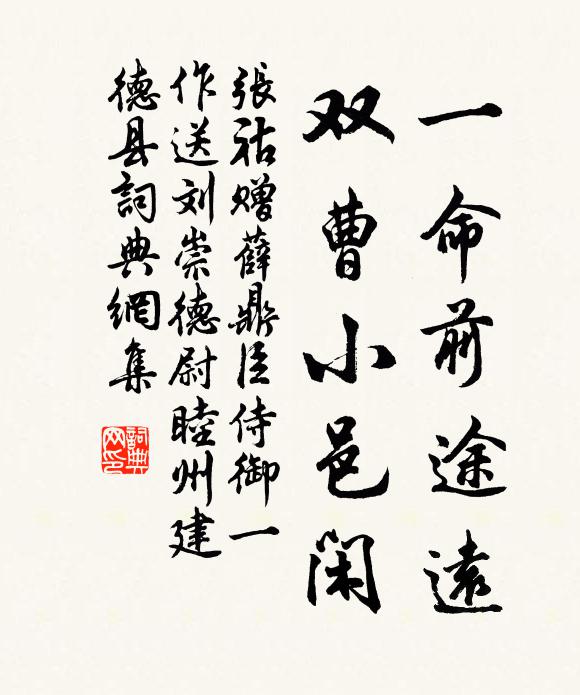 一命前途遠
双曹小邑閑
張祜赠薛鼎臣侍御一
作送刘崇德尉睦州建
德县詞典網集
詞典
网印